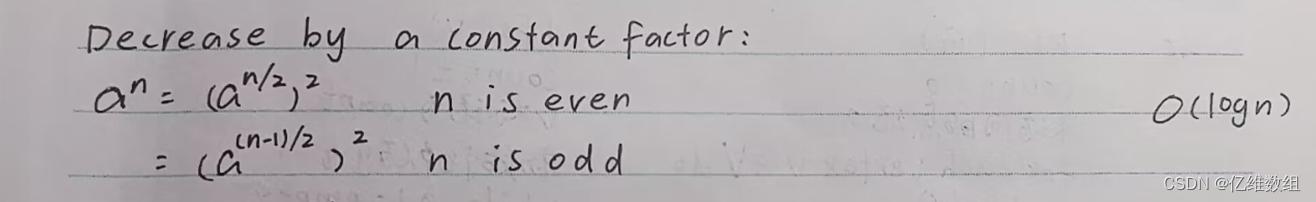 Decrease by a constant factor:
aⁿ = (a^(n/2))² n is even O(logn)
= (a^((n-1)/2))² n is odd
CSDN @亿维数组